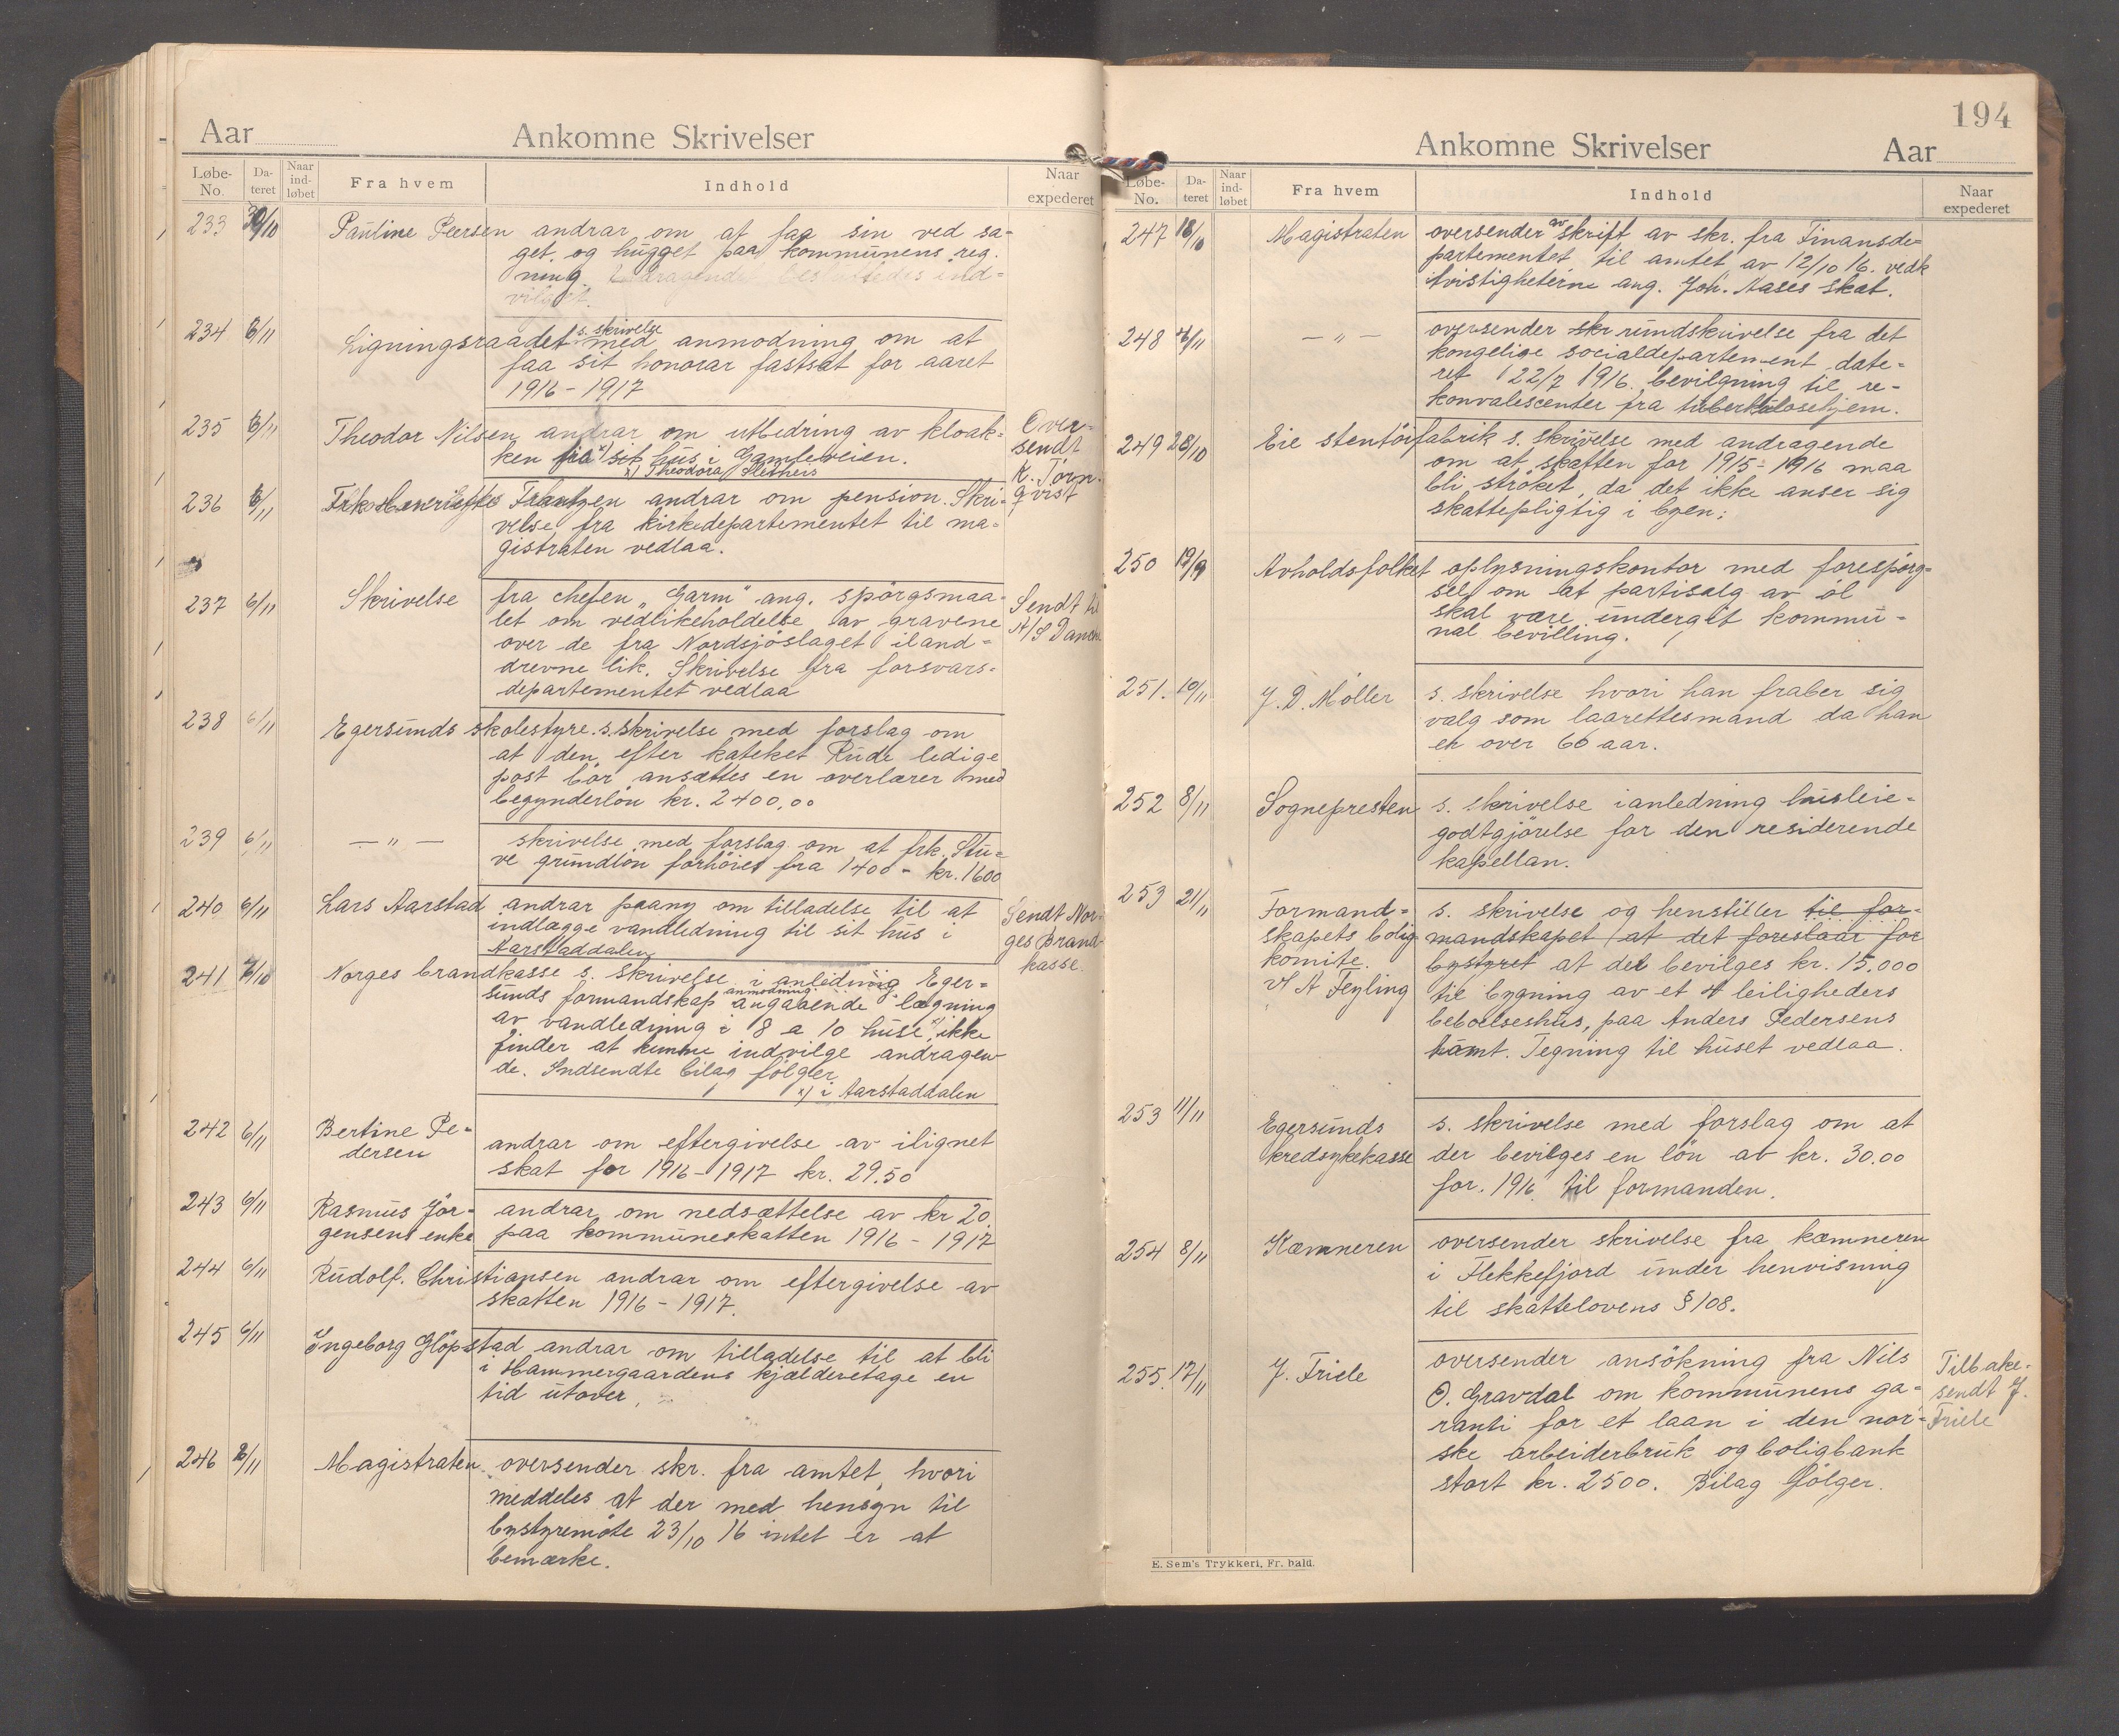 Aar
Ankomne Skrivelser
Løbe-No. Dateret Naar indløbet Fra hvem Indhold Naar expederet
233 30/10 Pauline Peersen andrar om at faa sin ved sa-
get og hugget paa kommunens reg.
ning.
234 6/11 Ligningsraadet s. skrivelse med anmodning om at
faa sit honorar fastsat for aaret
1916-1917
235 6/11 Theodor Nilsen andrar om utbedring av kloak-
ken fra x) sit hus i Gamleveien.
x) Theodora Sletheis
Over-
sendt
K. Törn-
qvist
236 6/11 Frk. Henriette Frantzen andrar om pension. Skri-
velse fra kirkedepartementet til ma-
gistraten vedlaa.
237 6/11 Skrivelse fra chefen "Garm" ang. spörgsmaa-
let om vedlikeholdelse av gravene
over de fra Nordsjöslaget iland-
drevne lik. Skrivelse fra forsvars-
departementet vedlaa
Sendt til
238 6/11 Egersunds skolestyre s. skrivelse med forslag om
at den efter kateket Rude ledige
post bör ansættes en overlærer med
begynderlön kr. 2400,00
239 6/11 — " — skrivelse med forslag om at frk. Stu-
ve grundlön forhöies fra 1400 - kr. 1600
240 6/11 Lars Aarstad andrar paany om tilladelse til at
indlægge vandledning til sit hus i
Aarstaddalen
Sendt Nor-
ges Brand-
kasse.
241 /10 Norges brandkasse s. skrivelse i anledning Eger-
sunds formandskap anmodning angaaende lægning
av vandledning i 8 a 10 huse x) ikke
finder at kunne indvilge andragen-
de. Indsendte bilag fölger
x) i Aarstaddalen
242 6/11 Bertine Pe-
dersen
andrar om eftergivelse av ilignet
skat for 1916-1917 kr. 29.50
243 6/11 Rasmus Jör-
gensens enke
andrar om nedsættelse av kr 20.
paa kommuneskatten 1916 - 1917
244 6/11 Rudolf. Christiansen andrar om eftergivelse av
skatten 1916 - 1917.
245 6/11 Ingeborg Glöpstad andrar om tilladelse til at bli
i Hammergaardens kjælderetage en
tid utover.
246 8/11 Magistraten oversender skr. fra amtet, hvori
meddeles at der med hensyn til
bystyremöte 23/10 16 intet er at
bemærke.
194
Ankomne Skrivelser
Aar
Løbe-No. Dateret Naar indløbet Fra hvem Indhold Naar expederet
247 18/10 Magistraten oversender avskrift av skr. fra Finansde-
partementet til amtet av 12/10 16. vedk
tvistigheterne ang. Joh. Aases skat.
248 /11 — " — oversender skr rundskrivelse fra det
kongelige socialdepartement date-
ret 22/7 1916. bevilgning til re-
konvalescenter fra tuberkulosehjem.
249 28/10 Eie stentöifabrik s. skrivelse med andragende
om at skatten for 1915-1916 maa
bli ströket, da det ikke anser sig
skattepligtig i byen.
250 19/9 Avholdsfolket oplysningskontor med forespörg-
sel om at partisalg av öl
skal være undergit kommu-
nal bevilling.
251. 10/11 J. D. Möller s. skrivelse hvori han fraber sig
valg som laarettesmand da han
er over 60 aar.
252 8/11 Sognepresten s. skrivelse i anledning husleie-
godtgjörelse for den residerende
kapellan.
253 21/11 Formand-
skapets bolig
komite.
v/ A Feyling
s. skrivelse og henstiller til for-
mandskapet at det foreslaar for
bystyret at det bevilges kr. 15.000
til bygning av et 4 leiligheders
beboelseshus, paa Anders Pedersens
tomt. Tegning til huset vedlaa.
253 11/11 Egersunds
kredsykekasse
s. skrivelse med forslag om at
der bevilges en lön av kr. 30.00
for. 1916 til formanden.
254 8/11 Kæmneren oversender skrivelse fra kæmneren
i Flekkefjord under henvisning
til skattelovens § 108.
255. 17/11 J. Friele oversender ansökning fra Nils
O. Gravdal om kommunens ga-
ranti for et laan i den nor-
ske arbeiderbruk og boligbank
stort kr. 2500. Bilag fölger.
Tilbake-
sendt J.
Friele
E. Sem's Trykkeri, Fr.hald.